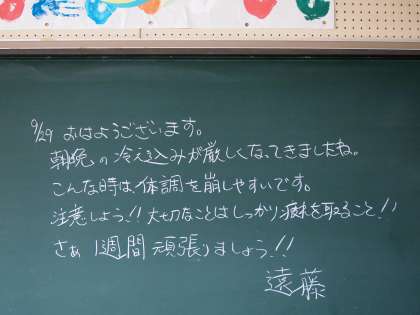 9/29 おはようございます。
朝晩の冷え込みが厳しくなってきましたね。
こんな時は体調を崩しやすいです。
注意しよう!!大切なことはしっかり疲れを取ること!!
さぁ1週間頑張りましょう!!
遠藤